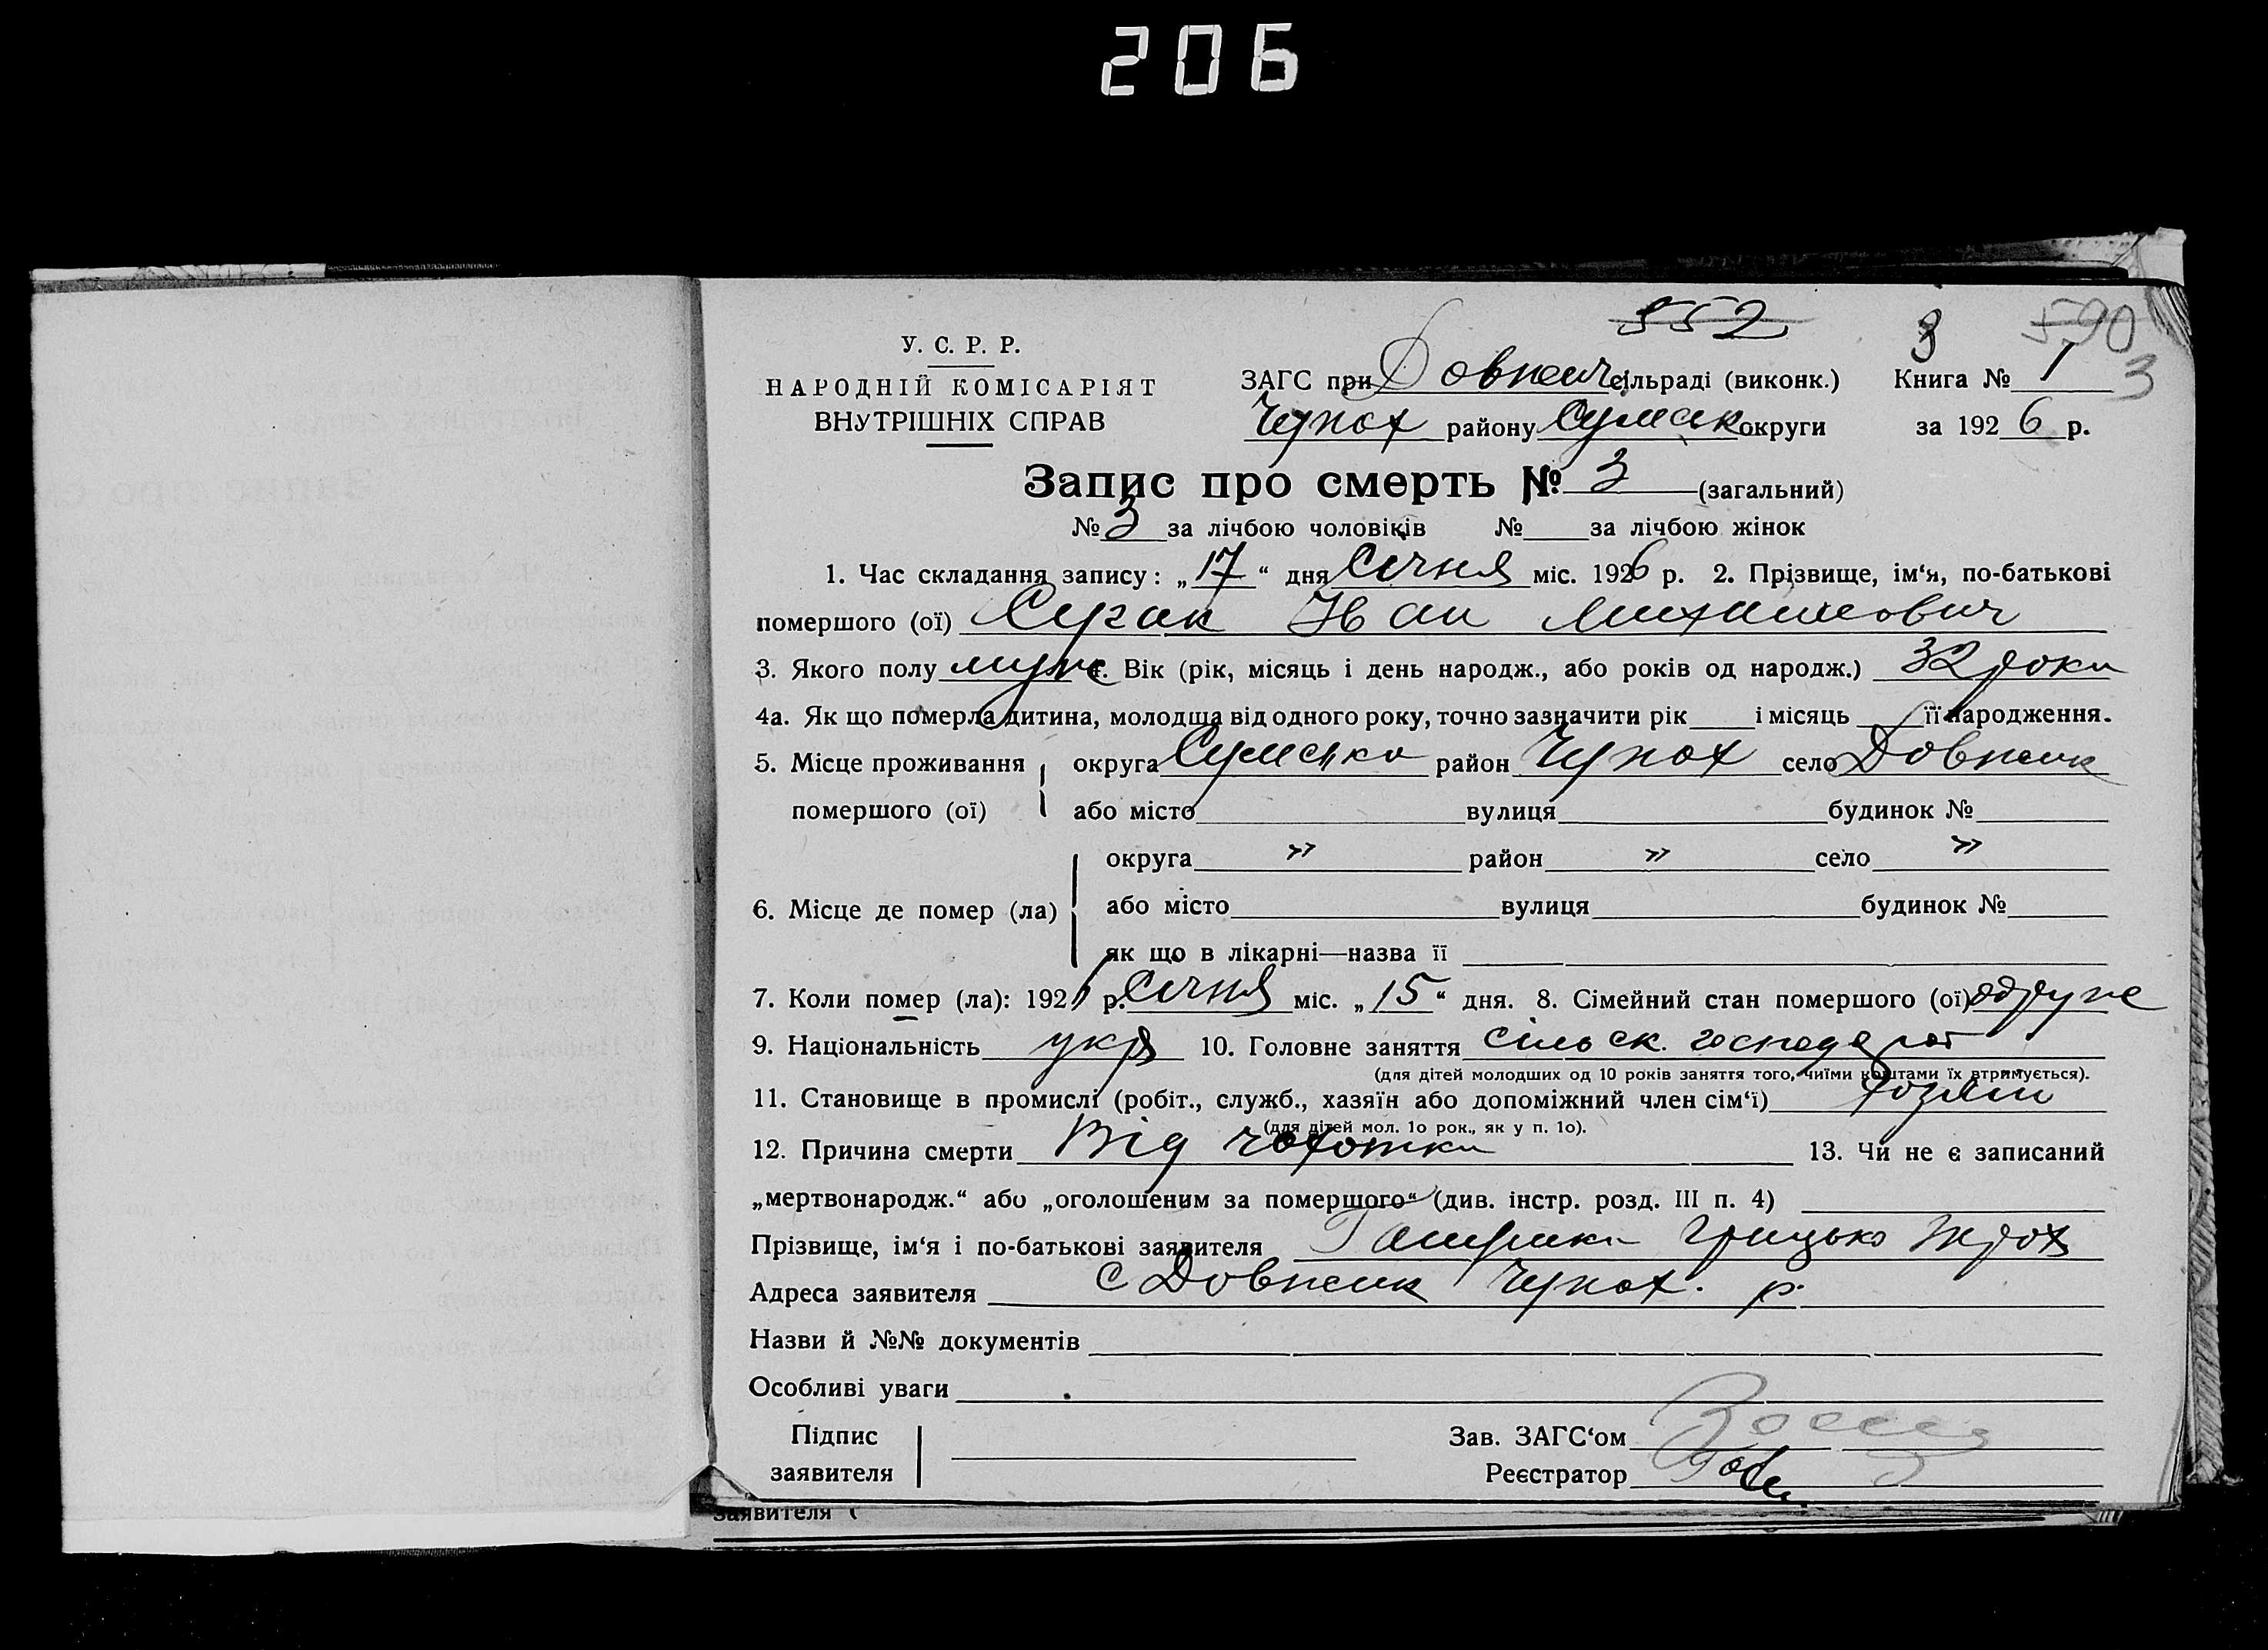 206
552 3 590
У. С. Р. Р.
НАРОДНІЙ КОМІСАРІЯТ
ВНУТРІШНІХ СПРАВ
ЗАГС при Довжич сільраді (виконк.) Книга № 1 3
Чупах району Сумськ округи за 1926 р.
Запис про смерть № 3 (загальний)
№ 3 за лічбою чоловіків № за лічбою жінок
1. Час складання запису: „17“ дня Січня міс. 1926 р. 2. Прізвище, ім‘я, по-батькові
помершого (ої) Іван Михайлович
3. Якого полу муж 4. Вік (рік, місяць і день народж., або років од народж.) 32 роки
4а. Як що померла дитина, молодша від одного року, точно зазначити рік і місяць її народження.
5. Місце проживання округа Сумська район Чупах село Довжик
помершого (ої) або місто вулиця будинок №
округа » район » село »
6. Місце де помер (ла) або місто вулиця будинок №
як що в лікарні—назва її
7. Коли помер (ла): 192 р. Січня міс. „15“ дня. 8. Сімейний стан помершого (ої) одруже
9. Національність укр 10. Головне заняття сільск. господар
(для дітей молодших од 10 років заняття того, чиїми коштами їх втримується).
11. Становище в промислі (робіт., служб., хазяїн або допоміжний член сім‘ї) хозяин
(для дітей мол. 1о рок., як у п. 1о).
12. Причина смерти Від чахотки 13. Чи не є записаний
„мертвонародж.“ або „оголошеним за помершого“ (див. інстр. розд. III п. 4)
Прізвище, ім‘я і по-батькові заявителя Грицько
Адреса заявителя с Довжик Чупах. р.
Назви й №№ документів
Особливі уваги
Підпис Зав. ЗАГС‘ом
заявителя Реєстратор
заявителя (